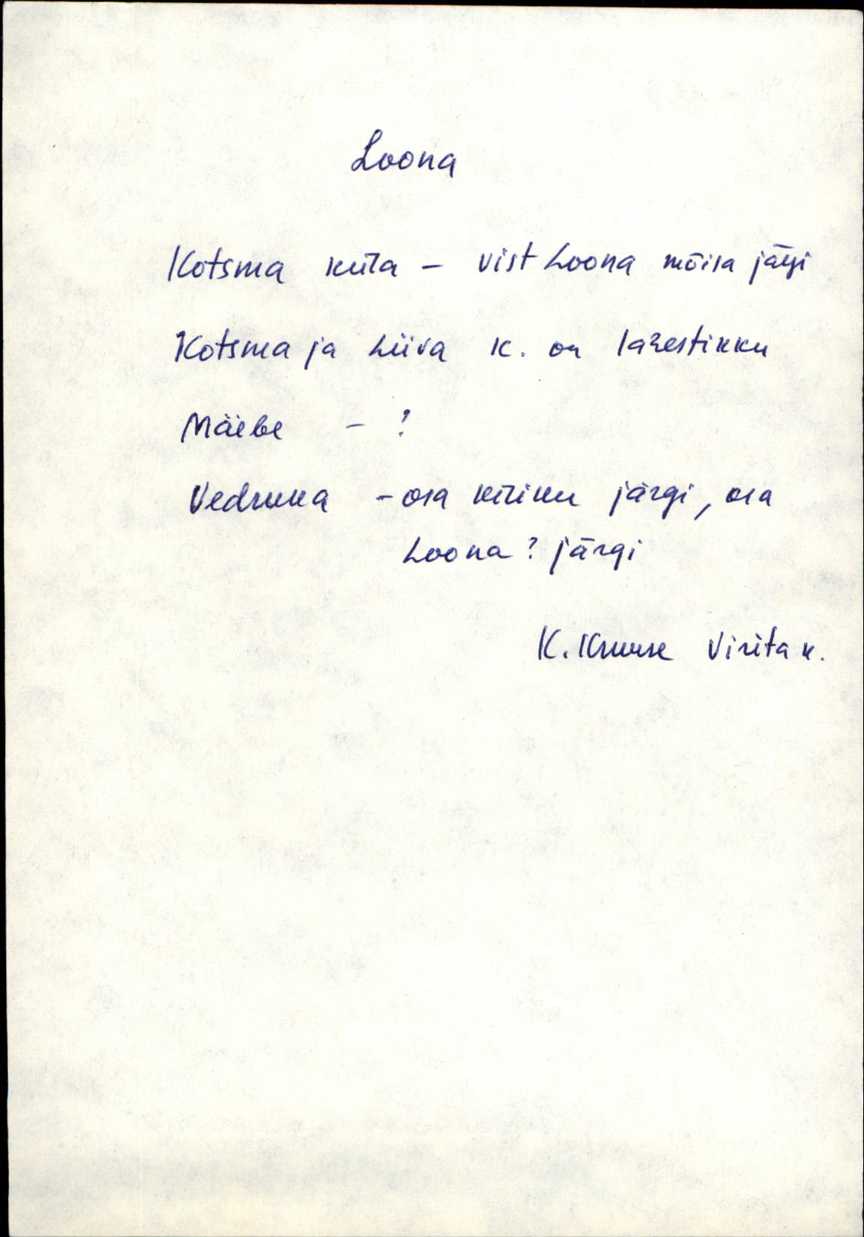 Loona
Kotsma küla – vist Loona mõisa järgi
Kotsma ja Liiva k. on lähestikku
Mäebe – ?
Vedruka – osa kiriku järgi, osa
Loona ? järgi
K. Kruuse Virita k.